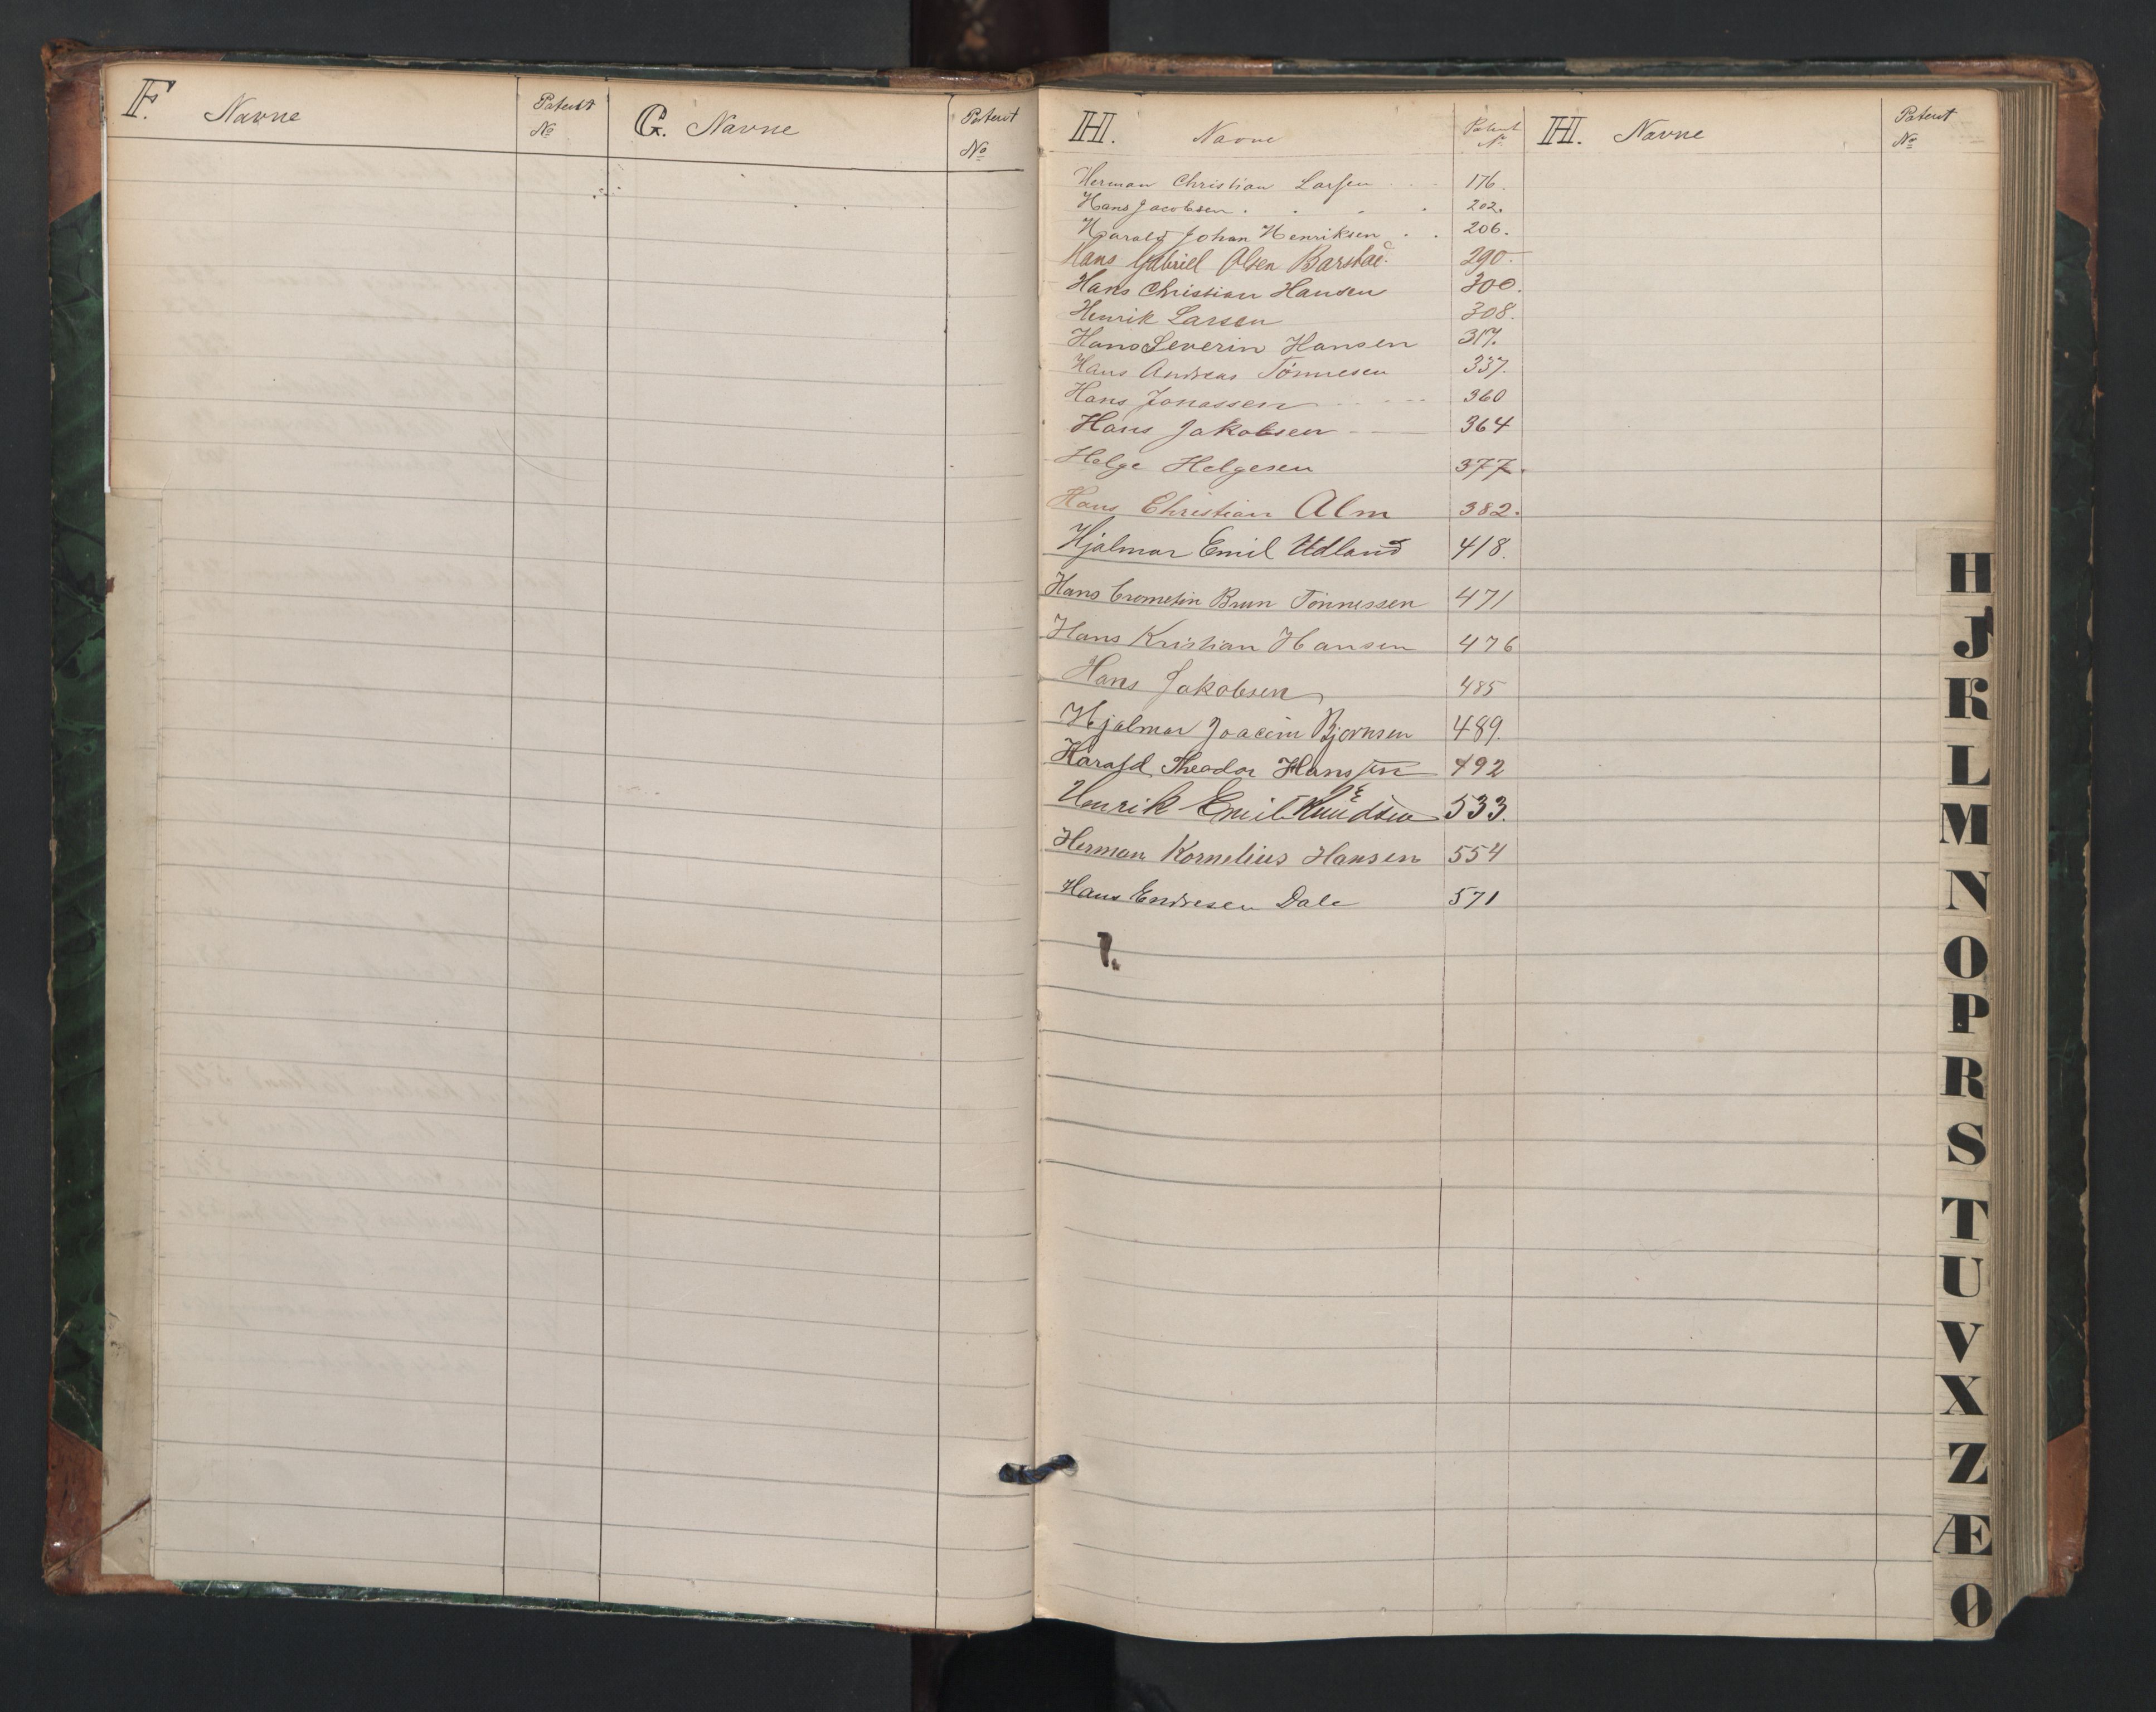 F. Navne Patent No
G. Navne Patent No
H. Navne Patent No
Herman Christian Larsen 176.
Hans Jacobsen 202.
Harald Johan Henriksen 206.
Hans Gabriel Olsen Barstad 290.
Hans Christian Hansen 300.
Henrik Larsen 308.
Hans Severin Hansen 317.
Hans Andreas Tönnesen 337.
Hans Jonassen 360
Hans Jakobsen 364
Helge Helgesen 377.
Hans Christian Alm 382.
Hjalmar Emil Udland 418.
Hans Brun Tönnessen 471
Hans Kristian Hansen 476
Hans Jakobsen 485
Hjalmar Joacim Bjornsen 489.
Harald Theodor Hanssen 492
Henrik Emil Knudsen 533.
Herman Kornelius Hansen 554
Hans Endresen Dale 571
H. Navne Patent No
H
J
K
L
M
N
O
P
R
S
T
U
V
X
Z
Æ
Ø